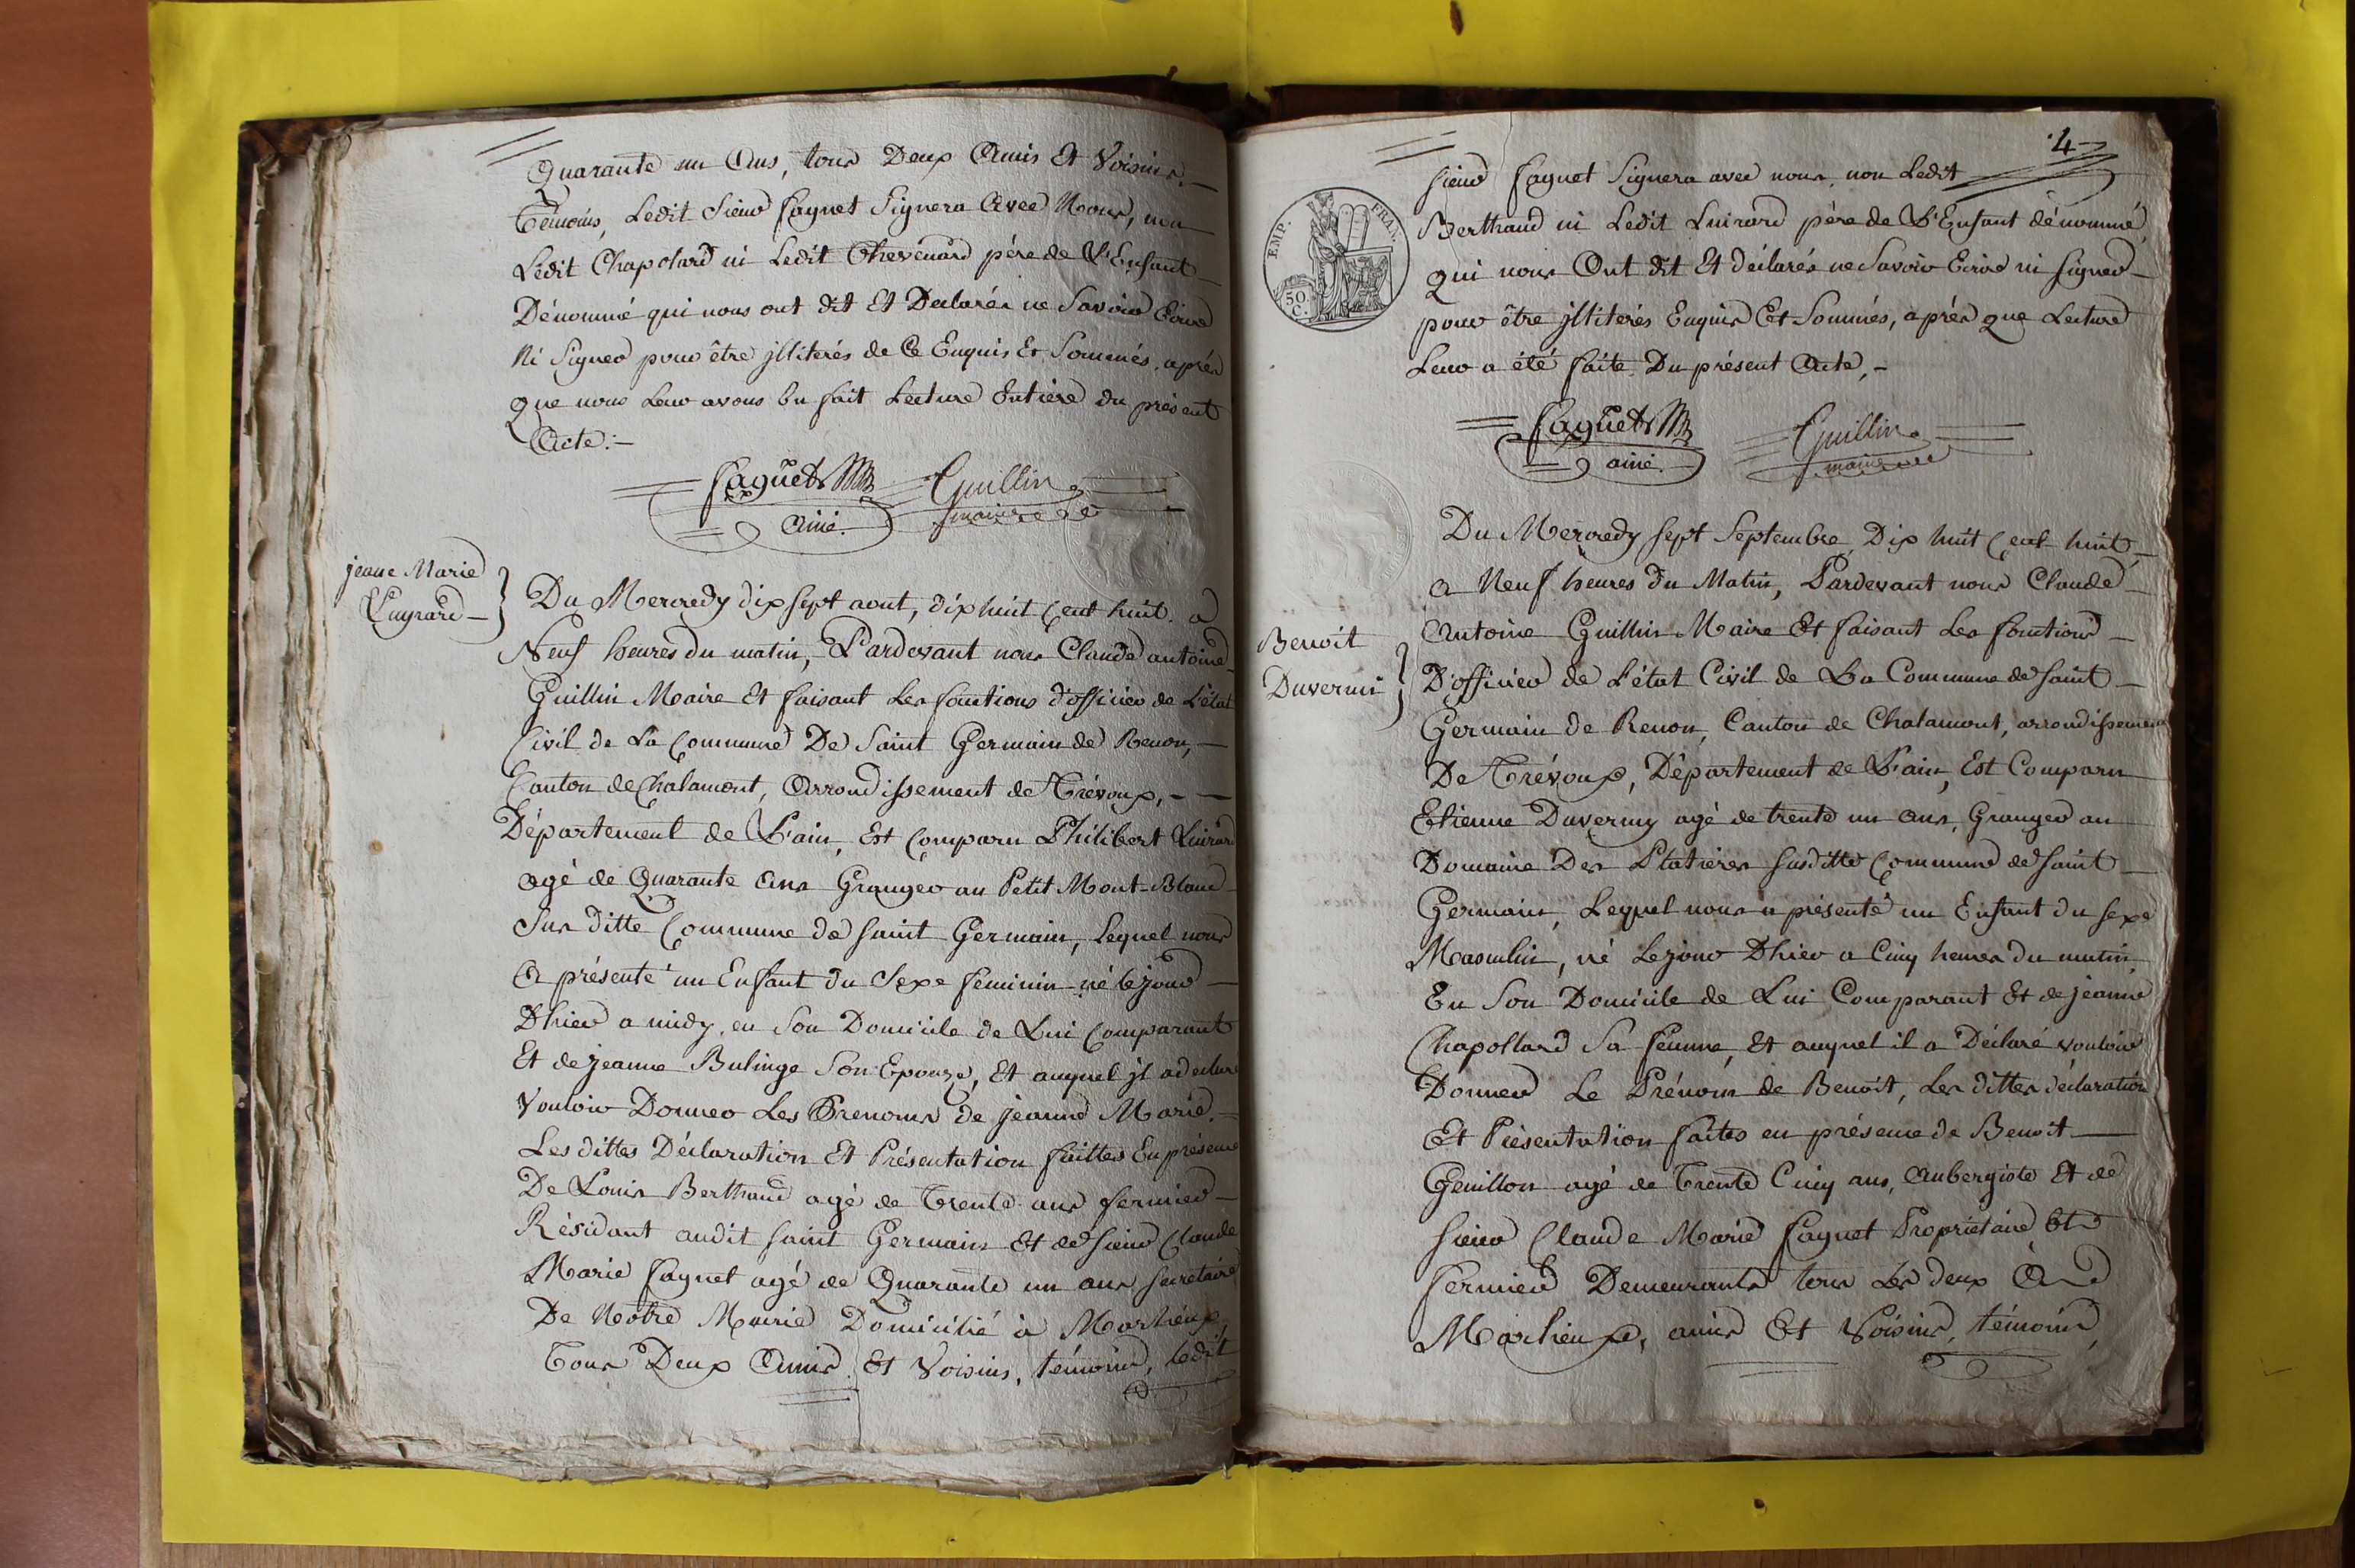 Quarante un Ans, tous Deux Amis Et Voisins,
Témoins, Ledit Sieur faguet Signera Avec Nous, non
Ledit Chapolard ni Ledit Thevenard père de L'Enfant
Dénommé qui nous ont dit Et Declarés ne Savoir Ecrire
Ni Signer pour être jlliterés de Ce Enquis Et Sommés, après
que nous Leur avons Eu fait Lecture Entiere du présent
Acte:
faguet
ainé
Guillin
maire
jeane Marie
Luyrard
Du Mercredy dix sept aout, dix huit Cent huit. a
Neuf heures du matin, Pardevant nous Claude antoine
Guillin Maire Et faisant Les fonctions d'officier de L'état
Civil de La Commune De Saint Germain de Renon,
Canton de Chalamont, Arrondissement de Trévoux,
Département de L'ain, Est Comparu Philibert Luirard
agé de Quarante Ans Granger au Petit Mont-Blanc
Sus ditte Commune de Saint Germain, Lequel nous
A présenté un Enfant du Sexe feminin né le jour
D'hier a midy, en Son Domicile de Lui Comparant
Et de jeanne Bulinge Son Epouze, Et auquel jl a declaré
Vouloir Donner Les Prenoms de jeanne Marie.
Les dittes Déclaration Et Présentation faittes En présence
De Louis Berthaud agé de Trente ans fermier
Résidant audit Saint Germain Et de Sieur Claude
Marie faguet agé de Quarante un ans Secretaire
De Notre Mairie Domicilié à Marlieux,
Tous Deux Amis Et Voisins, témoins, ledit
4
Sieur faguet Signera avec nous, non Ledit
Berthaud ni Ledit Luirard père de L'Enfant dénommé,
qui nous Ont dit Et déclarés ne Savoir Ecrire ni Signer
pour être jlliterés Enquis Et Sommés, après que Lecture
Leur a été faite Du présent Acte,
EMP. FRAN.
50 C.
faguet
ainé.
Guillin
maire
Benoit
Duverni
Du Mercredy sept Septembre Dix huit Cent huit
a Neuf heures du Matin, Pardevant nous Claude
Antoine Guillin Maire Et faisant Les fonctions
D'officier de L'état Civil de La Commune de Saint
Germain de Renon, Canton de Chalamont, arrondissement
De Trévoux, Département de L'ain, Est Comparu
Etienne Duverny agé de trente un ans, Granger au
Domaine Des Platières Susditte Commune de Saint
Germain, Lequel nous a présenté un Enfant du Sexe
Masculin, né Le jour D'hier a Cinq heures du matin,
En Son Domicile de Lui Comparant Et de jeanne
Chapollard Sa femme, Et auquel il a Déclaré vouloir
Donner Le Prénom de Benoit, Les dittes déclaration
Et Présentation faites en présence de Benoit
Genillon agé de Trente Cinq ans, Aubergiste Et de
Sieur Claude Marie faguet Propriétaire Et
fermier Demeurants tous Les deux A
Marlieux, amis Et Voisins, témoins,